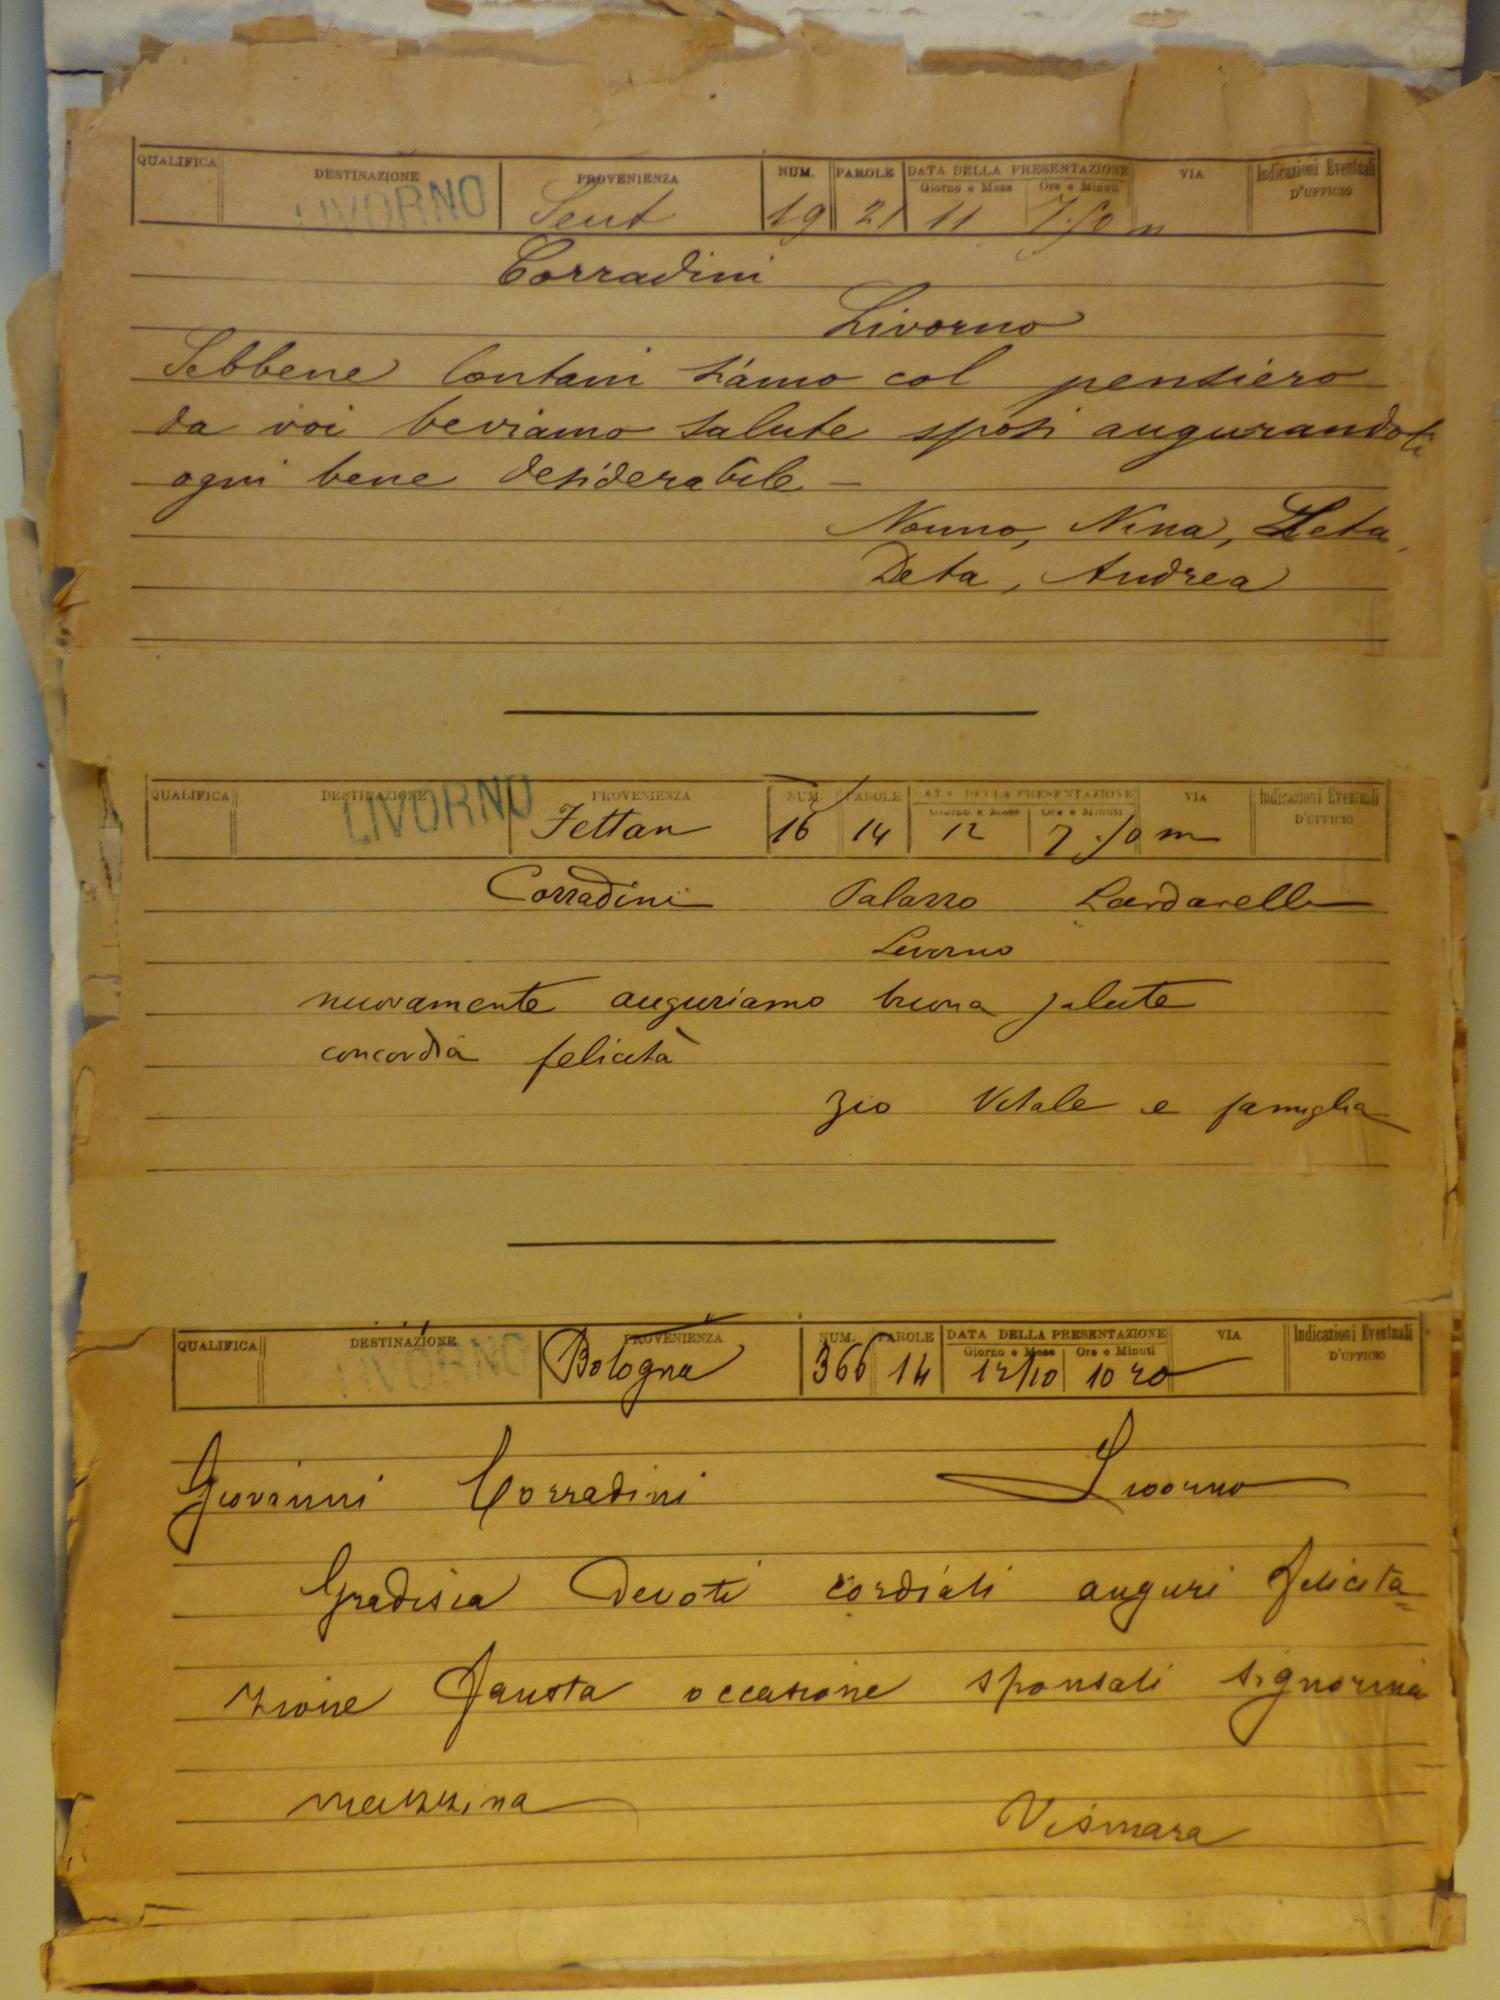 QUALIFICA DESTINAZIONE PROVENIENZA NUM. PAROLE DATA DELLA PRESENTAZIONE VIA Indicazioni Eventuali
Giorno e Mese Ore e Minuti D'UFFICIO
LIVORNO Sent 19 21 11 7.50 m
Corradini
Livorno
Sebbene lontani siamo col pensiero
da voi beviamo salute sposi augurandoti
ogni bene desiderabile —
Nonno, Nina,
Deta, Andrea
QUALIFICA DESTINAZIONE PROVENIENZA NUM. PAROLE DATA DELLA PRESENTAZIONE VIA Indicazioni Eventuali
Giorno e Mese Ore e Minuti D'UFFICIO
LIVORNO Fettan 16 14 12 7.50 m
Corradini Palazzo Lardarelli
Livorno
nuovamente auguriamo buona salute
concordia felicità
zio Vitale e famiglia
QUALIFICA DESTINAZIONE PROVENIENZA NUM. PAROLE DATA DELLA PRESENTAZIONE VIA Indicazioni Eventuali
Giorno e Mese Ore e Minuti D'UFFICIO
LIVORNO Bologna 366 14 12/10 10 20
Giovanni Corradini Livorno
Gradisca devoti cordiali auguri felicita=
zione fausta occasione sponsali signorina
mazzina Vismara